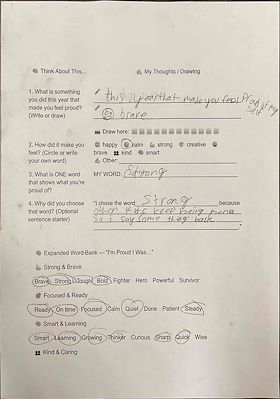 Think About This... My Thoughts / Drawing
1. What is something you did this year that made you feel proud? (Write or draw)
this year that made you feel Proud of my self
brave
Draw here:
2. How did it make you feel? (Circle or write your own word)
happy calm strong creative
brave kind smart
Other:
3. What is ONE word that shows what you're proud of?
MY WORD: Strong
4. Why did you choose that word? (Optional sentence starter)
"I chose the word Strong because
other kids keep being mena
So I say some thing back
Expanded Word-Bank — "I'm Proud I Was..."
Strong & Brave
Brave Strong Tough Bold Fighter Hero Powerful Survivor
Focused & Ready
Ready On time Focused Calm Quiet Done Patient Steady
Smart & Learning
Smart Learning Growing Thinker Curious Sharp Quick Wise
Kind & Caring